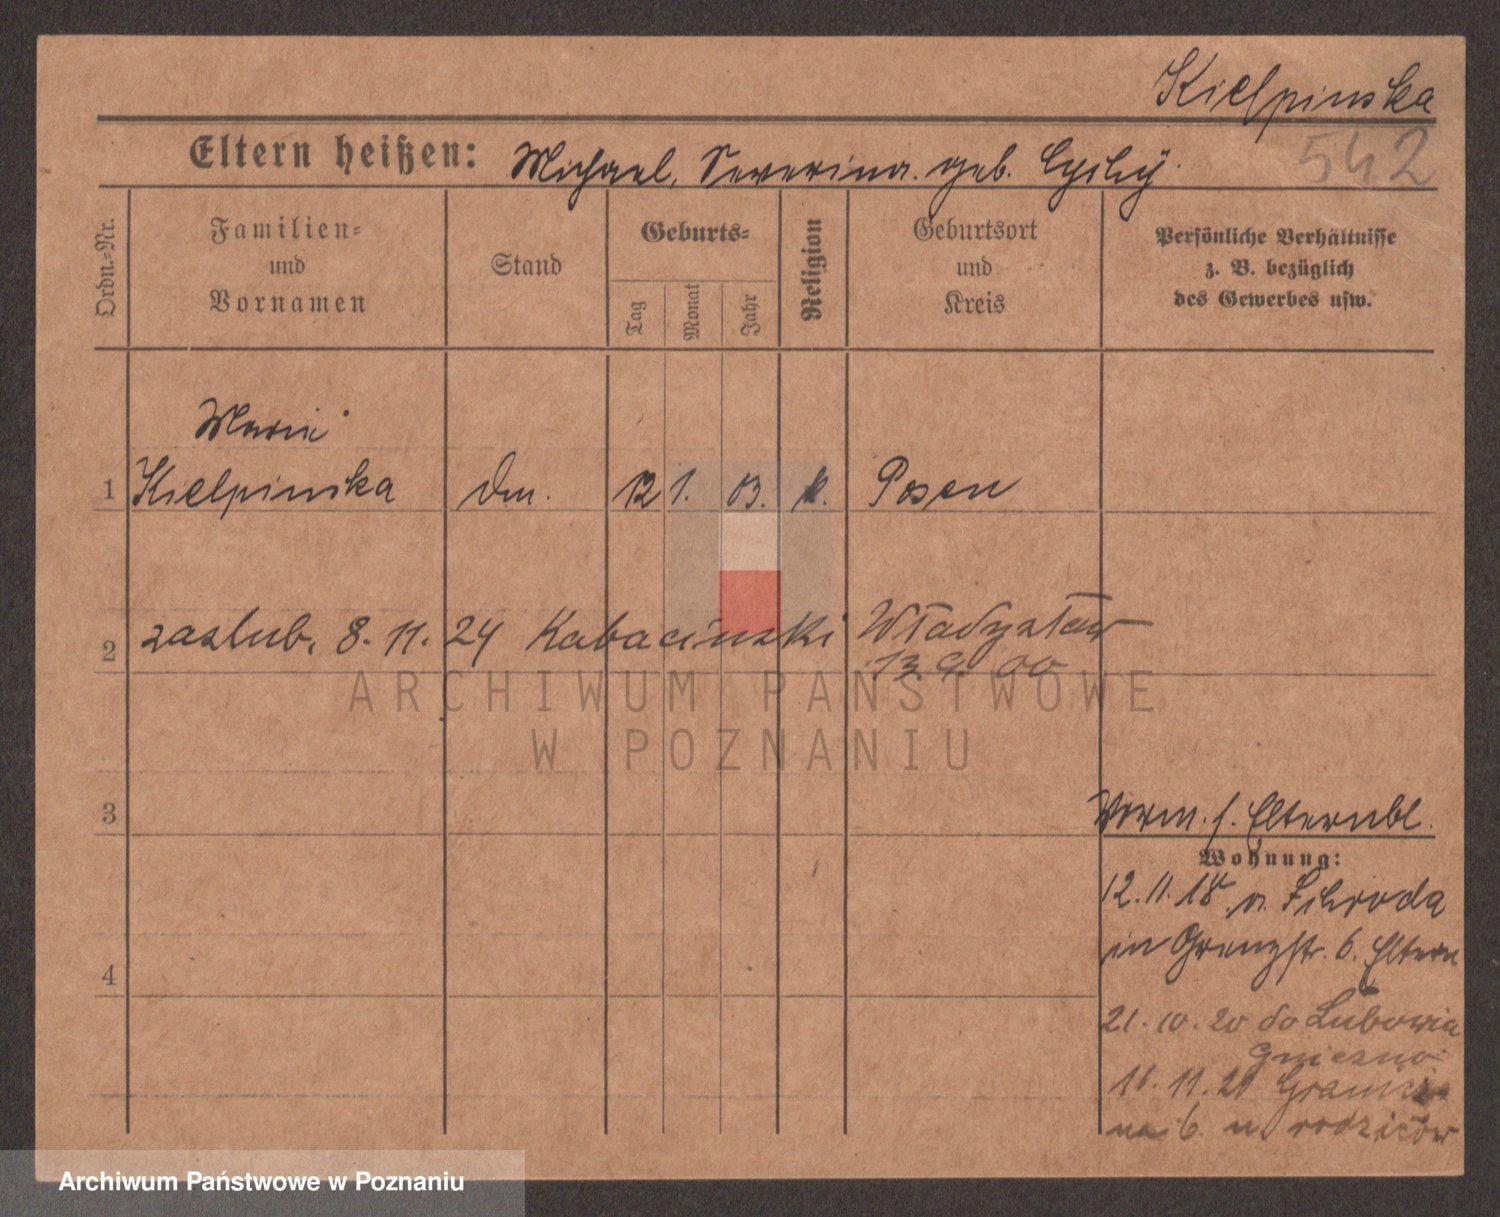 Kielpinska
542
Eltern heißen: Michael, Severina geb. Cichy
Ordn.-Nr.
Familien-
und
Vornamen
Stand
Geburts-
Tag
Monat
Jahr
Religion
Geburtsort
und
Kreis
Persönliche Verhältnisse
z. B. bezüglich
des Gewerbes usw.
Marie
1 Kielpinska Dm. 12 1. 03. k. Posen
2 zaslub. 8. 11. 24 Kabacinski Władysław
13. 9. 00
ARCHIWUM PAŃSTWOWE
W POZNANIU
3
Vorm. s. Elternbl.
Wohnung:
12. 11. 18. a. Schroda
in Grenzstr. 6. Eltern
4
21. 10. 20 do Lubowia
Gniezno
11. 20 Granicz-
na 6. u rodziców
Archiwum Państwowe w Poznaniu